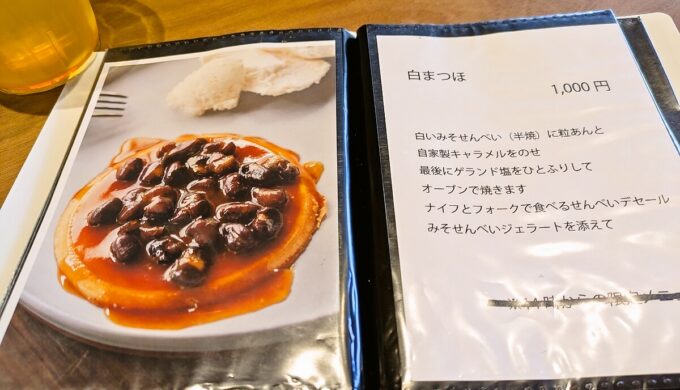 白まつほ
1,000 円
白いみそせんべい（半焼）に粒あんと
自家製キャラメルをのせ
最後にゲランド塩をひとふりして
オーブンで焼きます
ナイフとフォークで食べるせんべいデセール
みそせんべいジェラートを添えて